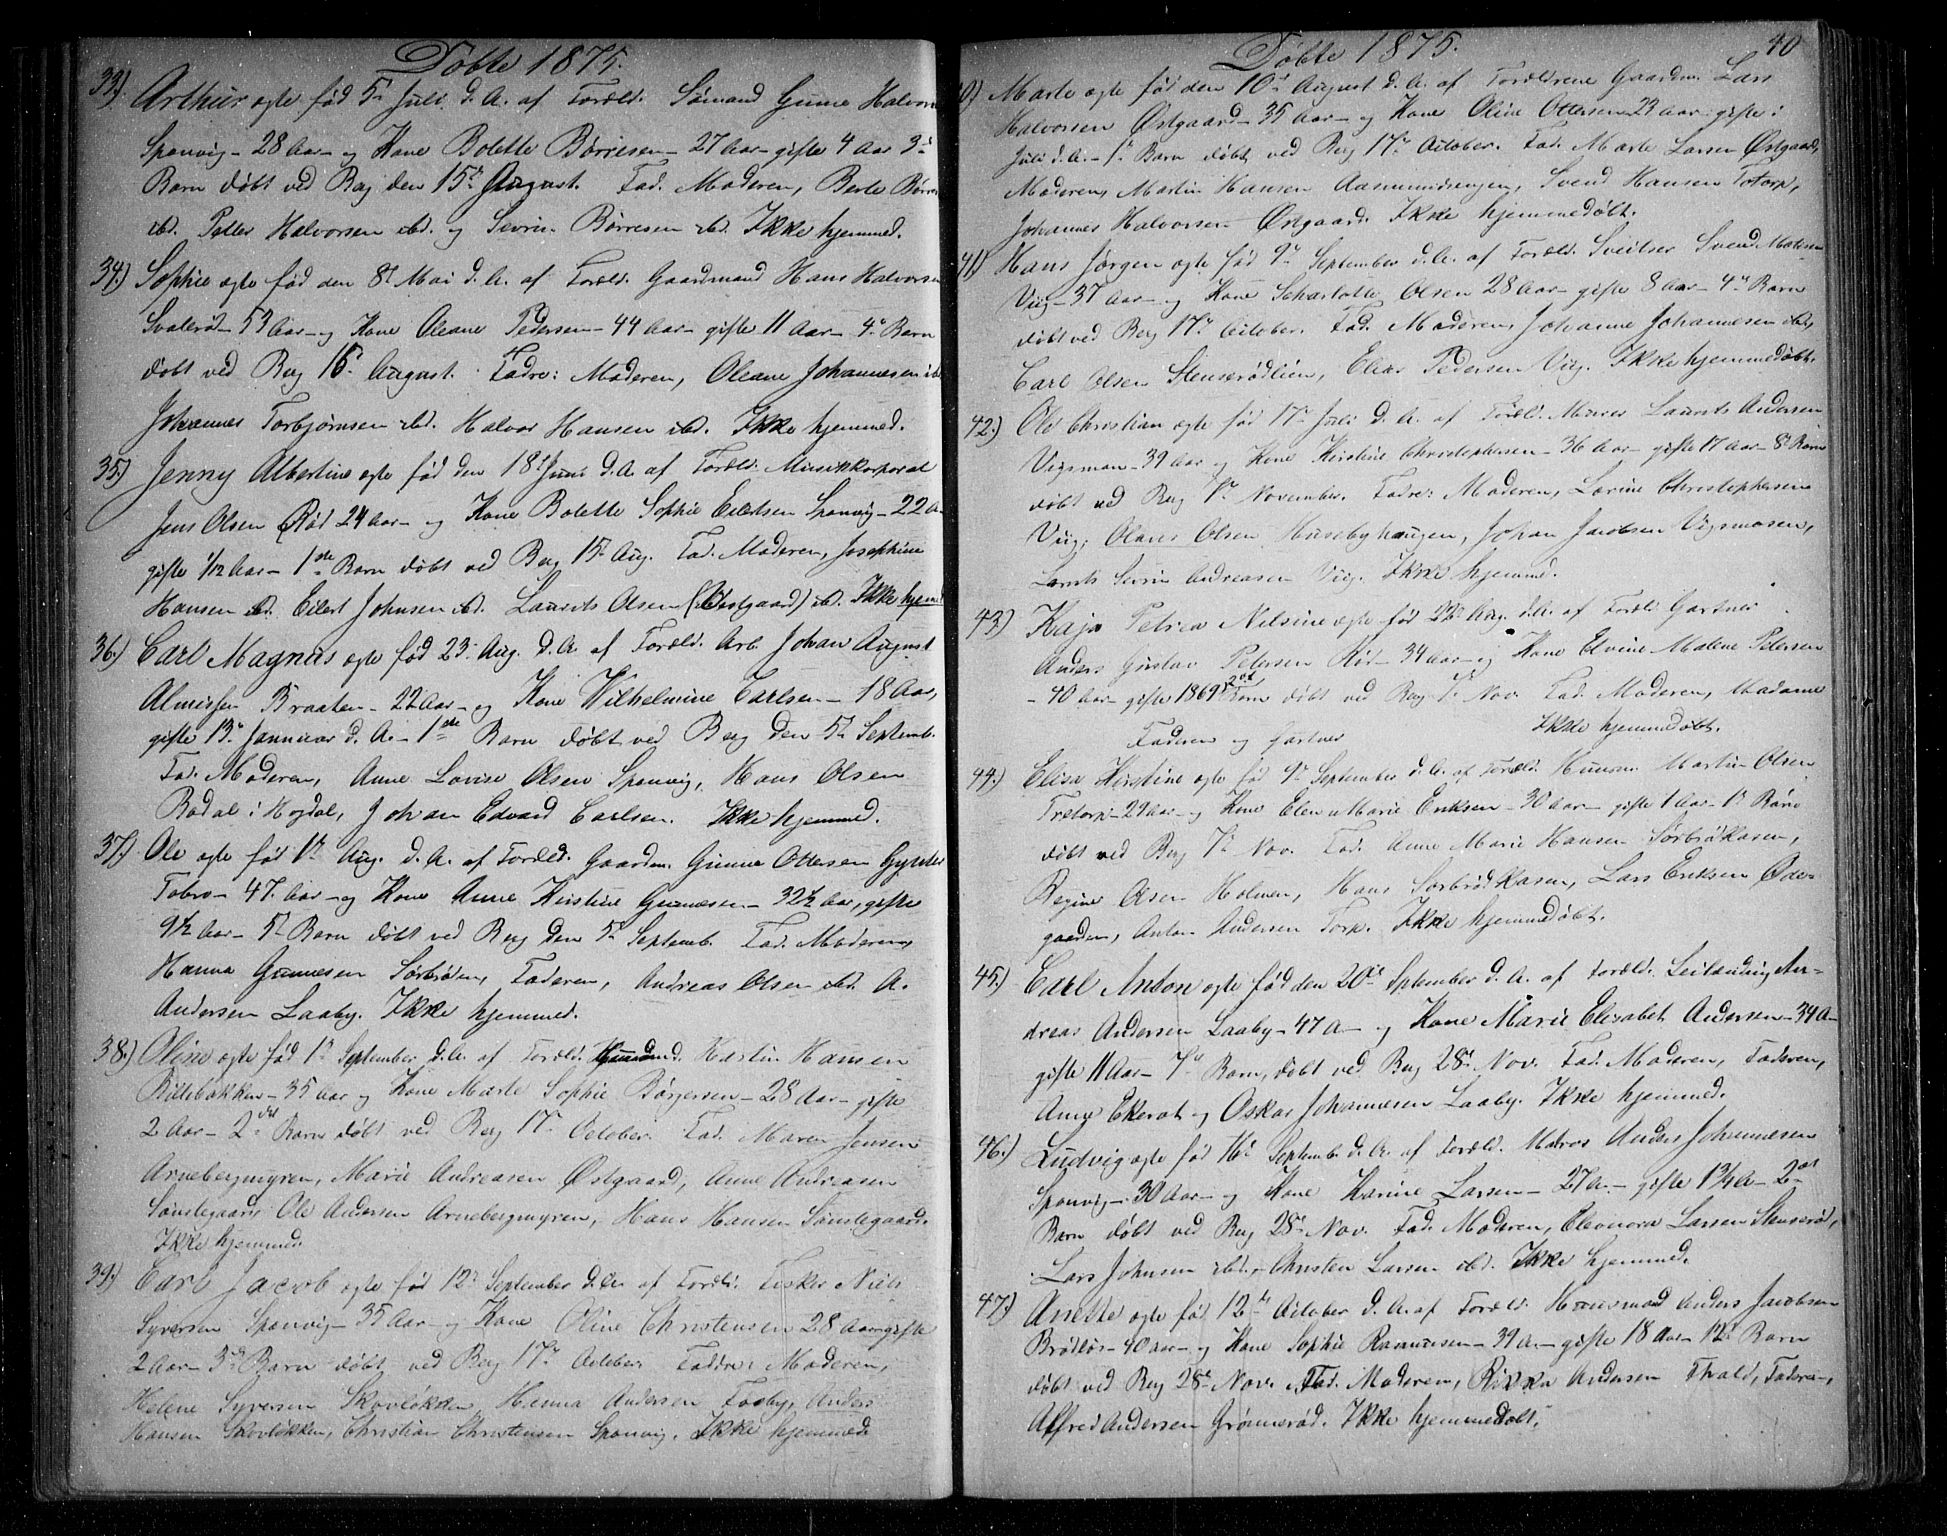 Döbte 1875.
33.) Arthur ægte fød 5te Juli d. A. af Foræld. Sömand Gunne Halvors
Sponvig - 28 Aar - og Kone Bolette Börresen - 27 Aar - gifte 4 Aar 3die
Barn döbt ved Berg den 15de August. Fad. Moderen, Berte Börre
ibd. Petter Halvorsen ibd. og Sevrin Börresen ibd. Ikke hjemmed.
34.) Sophie ægte fød den 8de Mai d. A. af Foræld. Gaardmand Hans Halvorsen
Svaleröd - 53 Aar - og Kone Oleane Pedersen - 44 Aar - gifte 11 Aar - 4de Barn
döbt ved Berg 15de August. Fadre: Moderen, Oleane Johannesen ibd
Johannes Torbjörnsen ibd. Halvor Hansen ibd. Ikke hjemmed.
35.) Jenny Albertine ægte fød den 18de Juni d. A. af Foræld. Musikkorporal
Jens Olsen Röd 24 Aar - og Kone Bolette Sophie Eilertsen Sponvig - 22 A
gifte 1/12 Aar - 1ste Barn döbt ved Berg 15de Aug. Fad. Moderen, Josephine
Hansen ibd. Eilert Johnsen ibd. Laurits Olsen (Östgaard) ibd. Ikke hjemd
36.) Carl Magnus ægte fød 23. Aug. d. A. af Foræld. Arb. Johan August
Braaten - 22 Aar - og Kone Wilhelmine Carlsen - 18 Aar,
gifte 13. Januar d. A. - 1ste Barn döbt ved Berg den 5te Septemb.
Fad. Moderen, Anne Lovise Olsen Sponvig, Hans Olsen
Badal i Hogdal, Johan Edvard Carlsen. Ikke hjemmed.
37.) Ole ægte fød 1ste Aug. d. A. af Foræld. Gaardm. Gunne Ottersen
Tobro - 47 Aar - og Kone Anne Kirstine Gunnesen - 32½ Aar, gifte
9½ Aar - 5te Barn döbt ved Berg den 5te Septemb. Fad. Moderen,
Hanna Gunnesen Sörbröden, Faderen, Andreas Olsen ibd. A.
Andersen Laaby. Ikke hjemmed.
38.) Oline ægte fød 1ste September d. A. af Foræld. Huusmd. Martin Hansen
Billebakken - 35 Aar og Kone Marte Sophie Börgersen - 28 Aar - gifte
2 Aar - 2det Barn döbt ved Berg 17de October. Fad. Maren Jensen
Arnebergmyren, Marie Andreasen Östgaard, Anne Andreasen
Sönstegaard, Ole Andersen Arnebergmyren, Hans Hansen Sönstegaard.
Ikke hjemmed.
39.) Carl Jacob ægte fød 12te September d. A. af Foræld. Fisker Niels
Syversen Sponvig - 35 Aar - og Kone Oline Christensen 28 Aar gifte
2 Aar - 3die Barn döbt ved Berg 17de October. Faddre: Moderen,
Helene Syversen Skovlökken Hanna Andersen Anders
Hansen Skovlökken, Christian Christensen Sponvig. Ikke hjemmed
40
Döbte 1875.
40) Marte ægte fød den 10de August d. A. af Forældrene Gaardm. Lars
Halvorsen Östgaard - 35 Aar - og Kone Oline Ottersen 23 Aar - gifte i
Juli d. A. - 1ste Barn döbt ved Berg 17de October. Fad. Marte Larsen Östgaard,
Moderen, Martin Hansen Aasmundrengen, Svend Hansen Totorp,
Johannes Halvorsen Östgaard. Ikke hjemmedöbt.
41) Hans Jörgen ægte fød 9de September d. A. af Foræld. Sveitser Svend
Viig - 37 Aar - og Kone Scharlotte Olsen 28 Aar - gifte 8 Aar - 4de Barn
döbt ved Berg 17de October. Fad. Moderen, Johanne Johannesen ibd,
Carl Olsen Stenserödlien, Elias Pedersen Viig. Ikke hjemmedöbt.
42.) Ole Christian ægte fød 17de Juli d. A. af Foræld. Murer Laurits Andersen
Vigsmosen - 39 Aar og Kone Kirstine Christophersen - 36 Aar - gifte 17 Aar - 8de Barn
döbt ved Berg 7de November. Fadre: Moderen, Lovine Christophersen
Viig, Olaves Olsen Husebyhaugen, Johan Jacobsen Vigsmosen,
Laurits Sevrin Andreasen Viig. Ikke hjemmed.
43.) Kaja Petrea Nilsine ægte fød 22de Aug. d. A. af Foræld. Gartner
Anders Gustav Petersen Röd - 34 Aar - og Kone Elvine Malene Petersen
- 40 Aar - gifte 1869 2det Barn döbt ved Berg 7de Nov. Fad. Moderen, Madame
Faderen og Gartner Ikke hjemmedöbt.
44.) Elise Kirstine ægte fød 9de September d. A. af Foræld. Huusm. Martin Olsen
Tretorp - 29 Aar - og Kone Elen Marie Eriksen - 30 Aar - gifte 1 Aar - 1ste Barn
döbt ved Berg 7de Nov. Fad. Anne Marie Hansen Sörbrökasen,
Regine Olsen Holmen, Hans Sörbrödkasen, Lars Eriksen Öde-
gaarden, Anton Andersen Torp. Ikke hjemmedöbt.
45.) Carl Anton ægte fød den 20de September d. A. af Foræld. Leilænding An-
dreas Andersen Laaby - 47 A - og Kone Marie Elisabet Andersen - 34 A -
gifte 11 Aar - 7de Barn, döbt ved Berg 28de Nov. Fad. Moderen, Faderen,
Anne Ekerat og Oskar Johannesen Laaby. Ikke hjemmed.
46.) Ludvig ægte fød 16de Septemb. d. A. af Foræld. Matros Anders Johannesen
Sponvig - 30 Aar - og Kone Karine Larsen - 27 A - gifte 1¾ A - 2det
Barn döbt ved Berg 28de Nov. Fad. Moderen, Eleonora Larsen Stenseröd,
Lars Johnsen ibd. Christen Larsen ibd. Ikke hjemmed.
47.) Anette ægte fød 12te October d. A. af Foræld. Huusmand Anders Jacobsen
Brödlös - 40 Aar - og Kone Sophie Rasmussen - 39 A - gifte 18 Aar - 12te Barn
döbt ved Berg 28de Nov. Fad. Moderen, Rikka Andersen Faderen,
Alfred Andersen Grönneröd. Ikke hjemmedöbt.